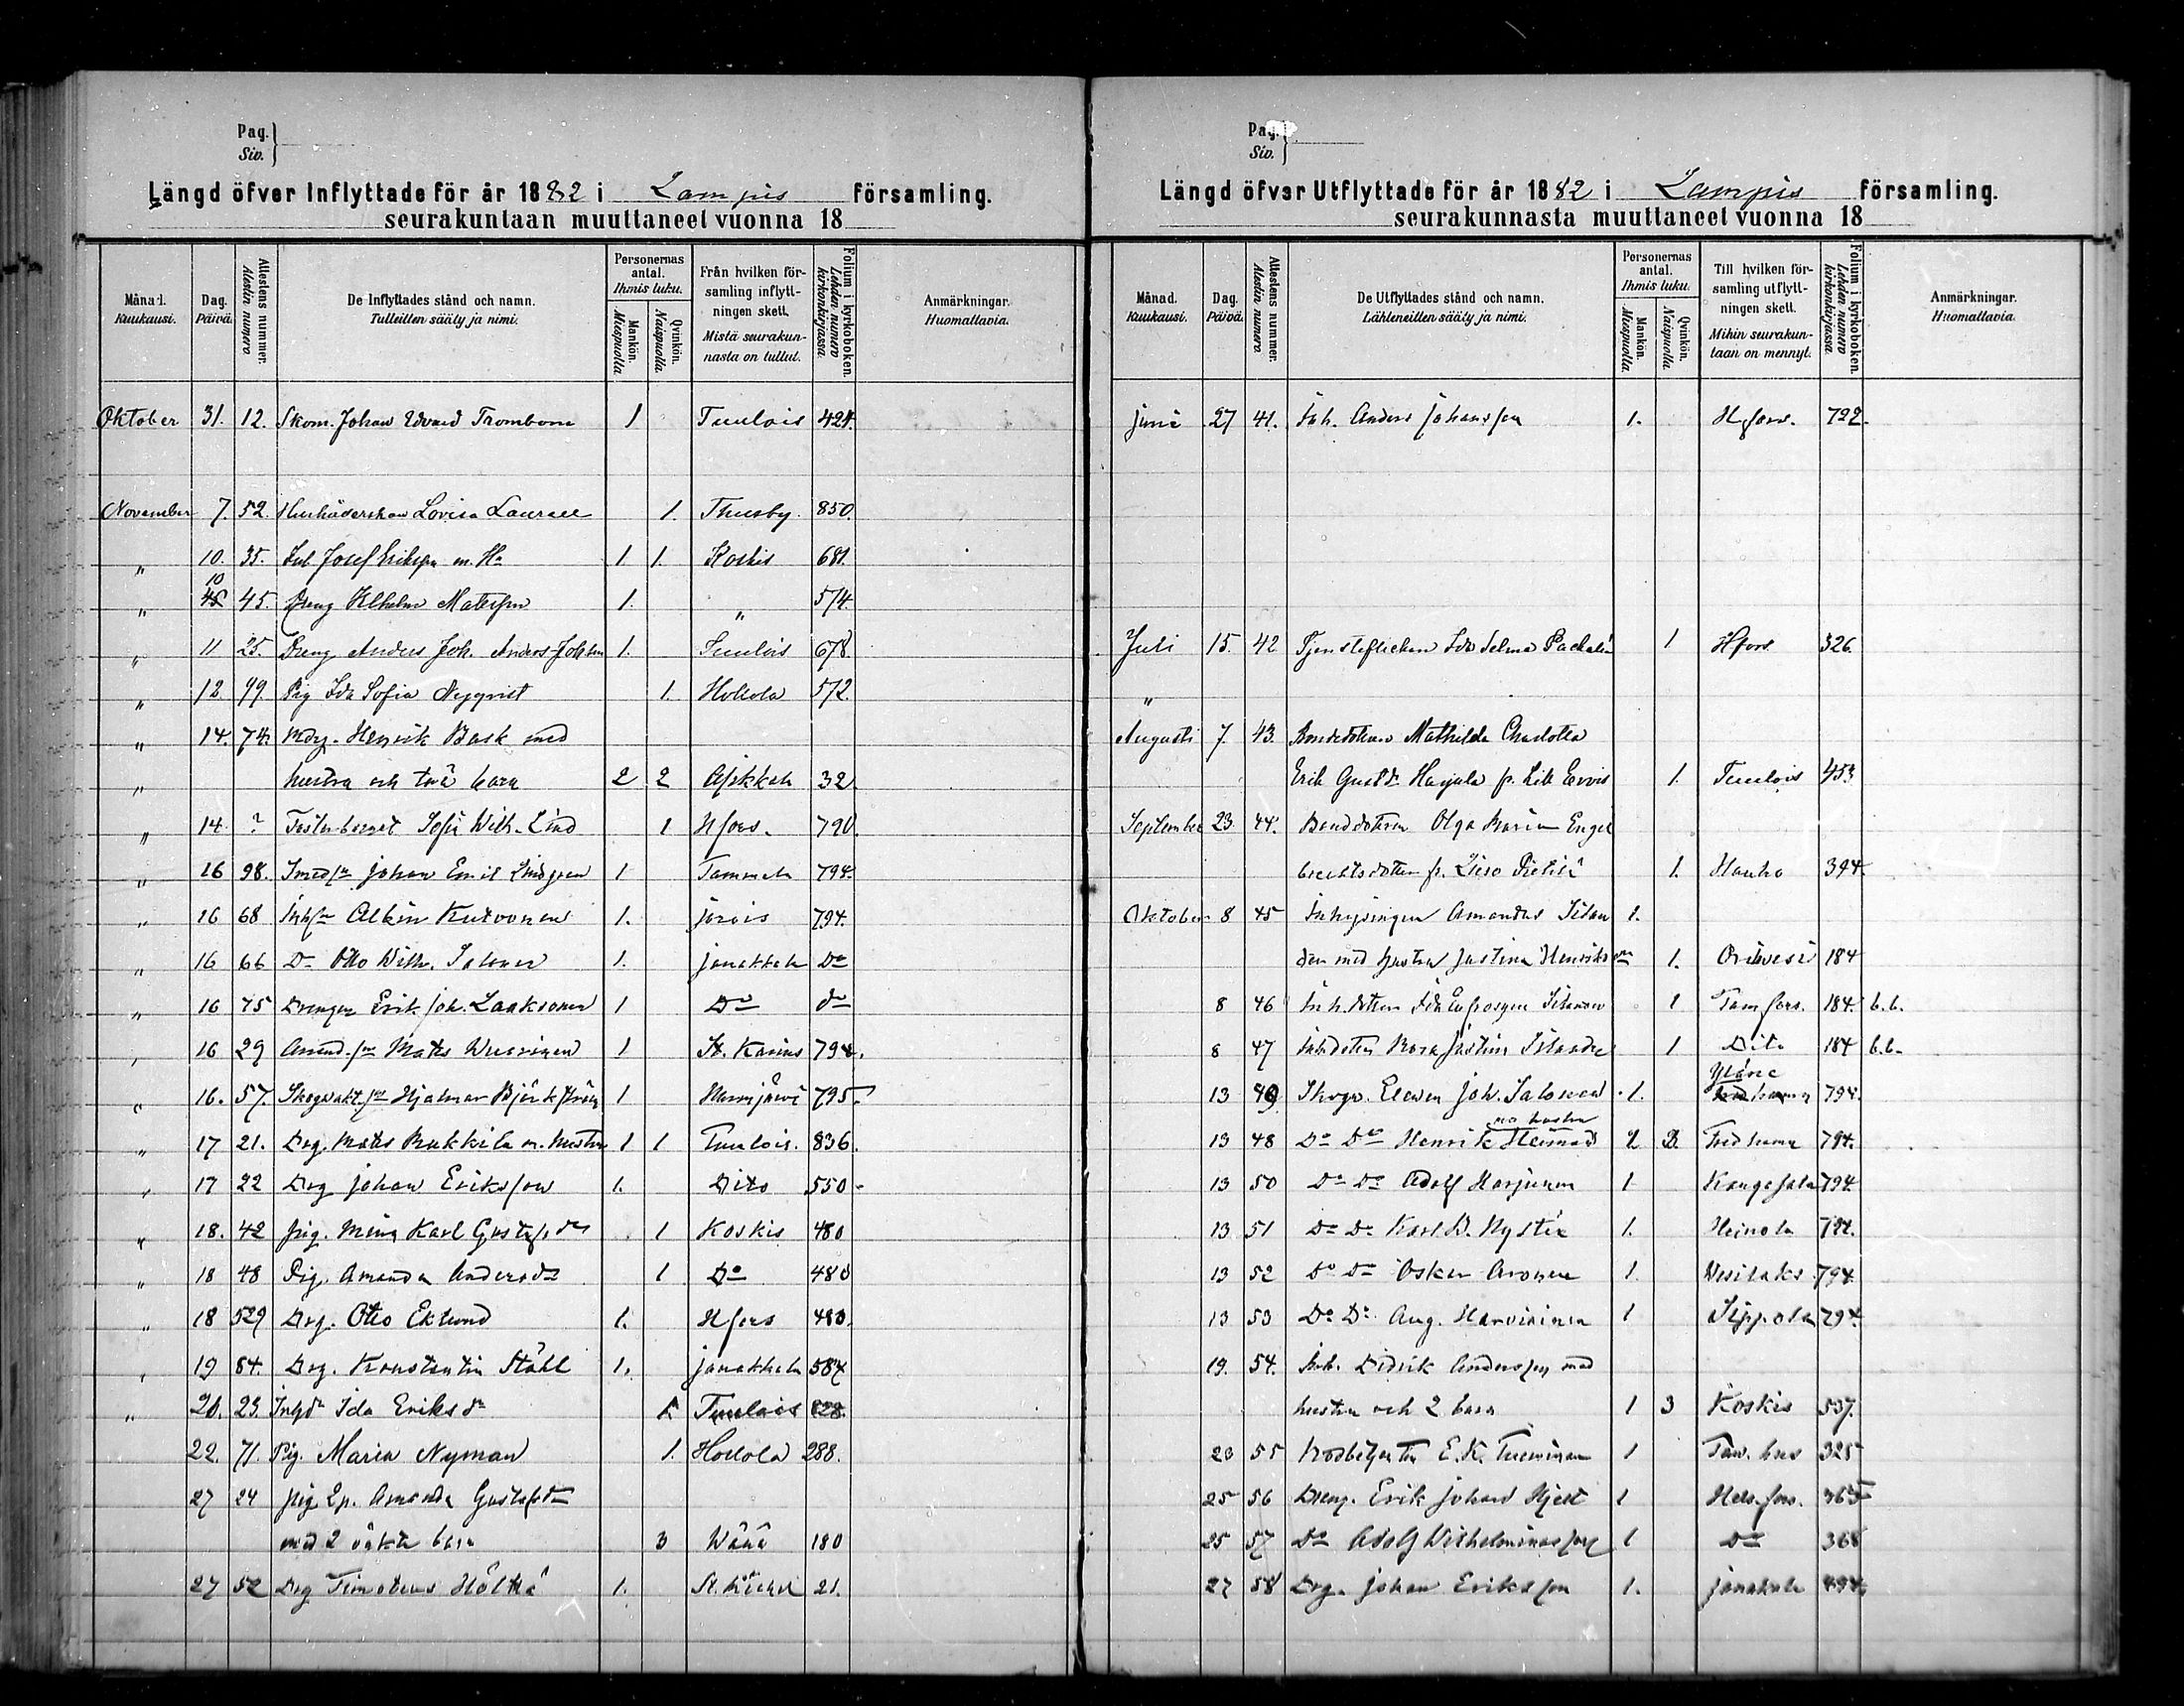 Pag.
Siv.
Längd öfver Inflyttade för år 1882 i Lampis församling.
seurakuntaan muuttaneet vuonna 18
Månad. Kuukausi.
Dag. Päivä
Attestens nummer. Atestin numero
De Inflyttades stånd och namn. Tulleitten sääty ja nimi.
Personernas antal. Ihmis luku.
Mankön. Miespuolia
Qvinkön. Naispuolia
Från hvilken församling inflyttningen skett. Mistä seurakunnasta on tullut.
Folium i kyrkoboken. Lehden numero kirkonkirjassa.
Anmärkningar. Huomattavia.
Oktober 31. 12. Skom. Johan Edvard Trombom 1 Tuulois 424.
November 7. 52. Lovisa 1. Thusby 850.
" 10. 35. Josef Eriksn m. Hu 1 1. Koskis 681.
" 10 45. Dreng Matsson 1. " 574
" 11 25. Dreng Anders Joh. Anders Johsson 1. Tuulois 678
" 12. 99. Pig Ida Sofia Nyqvist 1. Hollola 572
" 14. 74. Henrik Bask med
" hustru och två barn 2 2 32.
" 14. ? Sofia Wilh. Lind 1 Hfors. 790.
" 16 98. Johan Emil Lindgren 1 Tammela 794.
" 16 68 Albin Kutvonen 1. Jorois 794.
" 16 66 Do Otto Wilh. Salonen 1. Janakkala Do
" 16 75 Drengen Erik Joh. Laaksonen 1 Do do
" 16 29 Mats 1 St. Karins 794.
" 16. 57. Skogvakt.sn Hjalmar Björkström 1 795
" 17 21. Drg. Mats Rukkila m. hustru 1 1 Tuulois. 836.
" 17 22 Drg Johan Eriksson 1. Dito 550
" 18. 42 Pig. Mina Karl Gustafsdr 1 Koskis 480
" 18 48 Pig. Amanda Andersdr 1 Do 480
" 18 529 Drg. Otto Eklund 1. Hfors 480.
" 19 84. Drg. Konstantin Ståhl 1. Janakkala 584
" 20. 23. Inhdr Ida Eriksdr 1. Tuulois 828.
22. 71. Pig. Maria Nyman 1. Hollola 288.
27 24 Pig. Amanda Gustafsdr
med 2 oäkta barn 3 Wånå 180
27 52 Drg Timoteus Höltkä 1. 21.
Pag.
Siv.
Längd öfver Utflyttade för år 1882 i Lampis församling.
seurakunnasta muuttaneet vuonna 18
Månad. Kuukausi.
Dag. Päivä.
Attestens nummer. Atestin numero
De Utflyttades stånd och namn. Lähteneitten sääty ja nimi.
Personernas antal. Ihmis luku.
Mankön. Miespuolia
Qvinkön. Naispuolia
Till hvilken församling utflyttningen skett. Mihin seurakuntaan on mennyt.
Folium i kyrkoboken. Lehden numero kirkonkirjassa.
Anmärkningar. Huomattavia.
Juni 27 41. Inh. Anders Johansson 1. Hfors. 722.
Juli 15. 42 Tjensteflickan Ida Selma Packalén 1 Hfors 326.
"
Augusti 7. 43. Bondedottren Mathilda Charlotta
Erik Gustdr Harjula fr. Evois 1. Tuulois 453
September 23. 44. Bonddottren Olga Karin Engel
brechtsdotter fr. Liso Pietilä 1. Hauho 394.
Oktober 8 45 Inhysingen Amandus Silan 1.
der med hustru Justina Henriksdr 1. Orivesi 184
8 46 Inh. dottren Ida Eufrosyne 1 Tamfors. 184. b.b.
8 47 Inhdottren Justina 1 Dito 184 b.b.
13 49 Skogv. Eleven Joh. Salonen 1. 794.
13 48 Do Do Henrik Heimad med hustru 794.
13 50 Do Do Adolf Harjunen 1 Kangasala 794.
13 51 Do Do Karl W. Nystén 1. Heinola 794.
13 52 Do Do Oskar Aronen 1. Wesilaks 794
13 53 Do Do Aug. 1 Sippola 794.
19. 54. Inh. Didrik Andersson med
hustru och 2 barn 1 3 Koskis 537.
23 55 E. K. 1 Taw. hus 325
25 56 Dreng. Erik Johan Hjelt 1 Hels.fors.
25 57 Do Adolf Wilhelminasson 1 Do 368
27 58 Drg. Johan Eriksson 1. Janakkala 494.